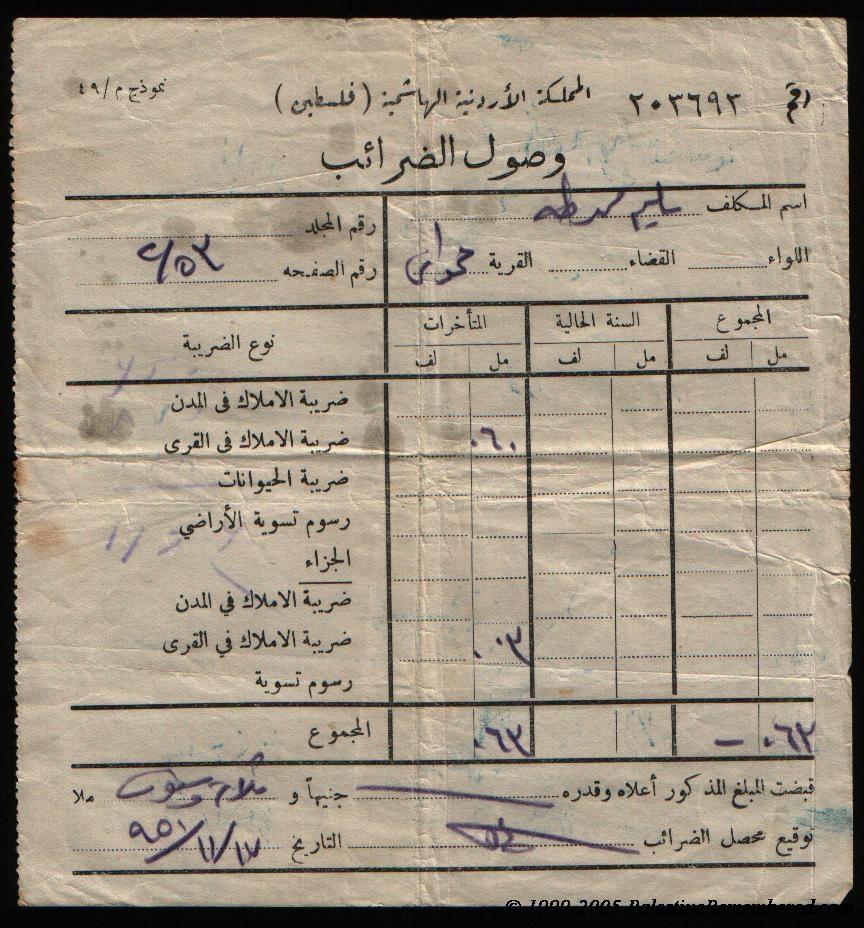 رقم ٢٠٣٦٩٣ المملكة الأردنية الهاشمية ( فلسطين ) نموذج م/٤٩
وصول الضرائب
اسم المكلف سليم طه
رقم المجلد
اللواء القضاء القرية
رقم الصفحه
المجموع السنة الحالية المتأخرات نوع الضريبة
مل لف مل لف مل لف
ضريبة الاملاك في المدن
٠٦٠ ضريبة الاملاك في القرى
ضريبة الحيوانات
رسوم تسوية الأراضي
الجزاء
ضريبة الاملاك في المدن
٠٠٣ ضريبة الاملاك في القرى
رسوم تسوية
٠٦٣ — ٠٦٣ المجموع
قبضت المبلغ المذكور أعلاه وقدره جنيهاً و ملا
توقيع محصل الضرائب التاريخ ١٧/١١/٩٥١
© 1999-2005 PalestineRemembered.com